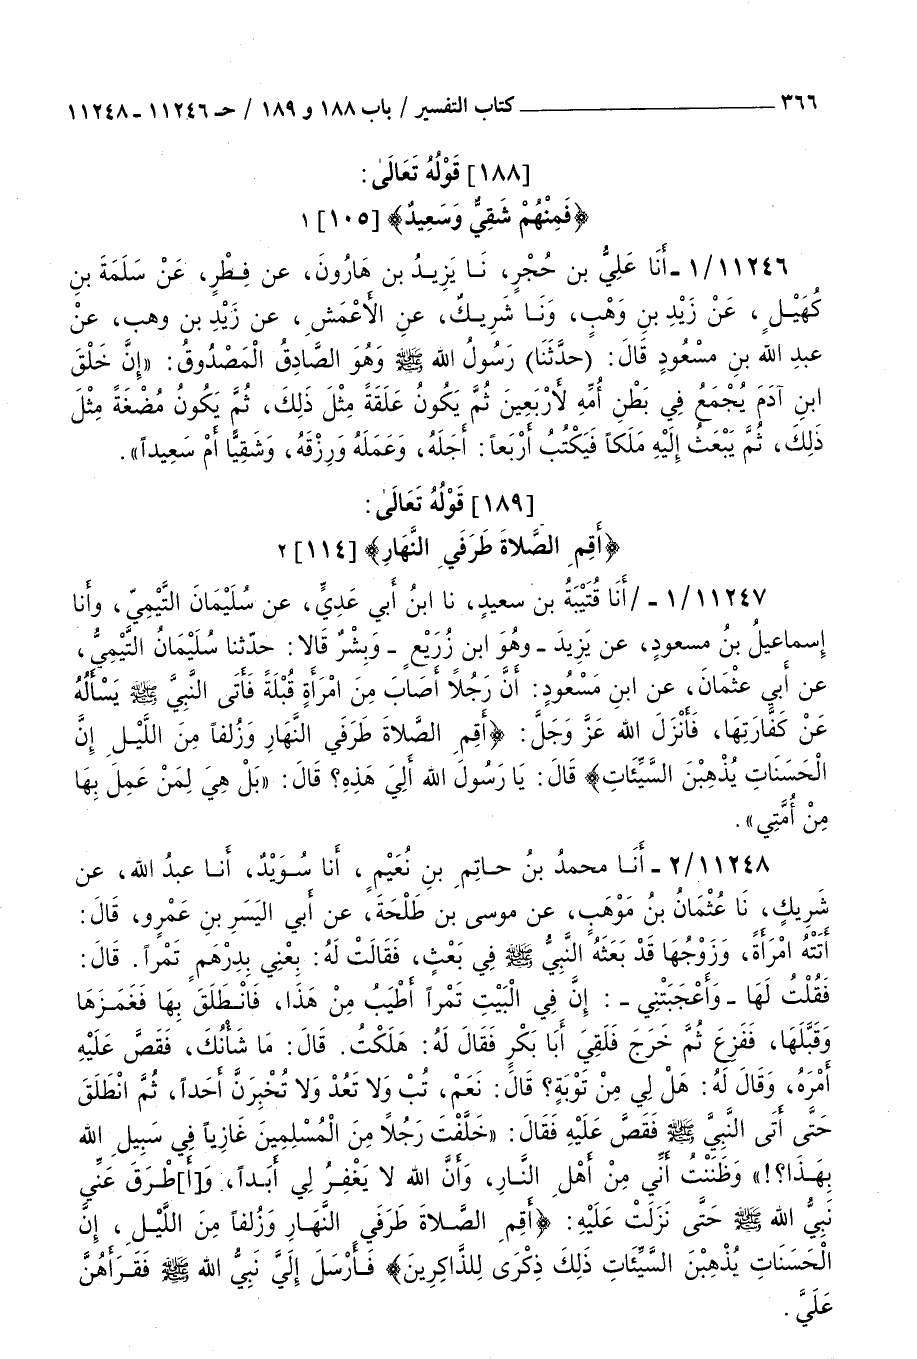 ٣٦٦ ــــــــــــ كتاب التفسير / باب ١٨٨ و ١٨٩ / حـ ١١٢٤٦ - ١١٢٤٨
[١٨٨] قَوْلُهُ تَعَالَىٰ :
﴿فَمِنْهُمْ شَقِيٌّ وَسَعِيدٌ﴾ [١٠٥] ١
١/١١٢٤٦ - أَنَا عَلِيُّ بن حُجْرٍ، نَـا يَزِيـدُ بن هَارُونَ، عن فِـطْرٍ، عَنْ سَلَمَةَ بنِ
كُهَيْـلٍ ، عَنْ زَيْدِ بنِ وَهْبٍ، وَنَـا شَرِيـكٌ، عنِ الأَعْمَشِ ، عن زَيْدِ بن وهب، عنْ
عبدِ الله بنِ مسْعُودٍ قَالَ: (حدَّثَنَا) رَسُولُ الله ﷺ وَهُوَ الصَّادِقُ الْمَصْدُوقُ: «إِنَّ خَلْقَ
ابنِ آدَمَ يُجْمَعُ فِي بَطْنِ أُمِّهِ لأَرْبَعِينَ ثُمَّ يَكُونُ عَلَقَةً مِثْلَ ذَلِكَ، ثُمَّ يَكُونُ مُضْغَةً مِثْلَ
ذَلِكَ، ثُمَّ يَبْعَثُ إِلَيْهِ مَلَكاً فَيَكْتُبُ أَرْبَعاً: أَجَلَهُ، وَعَمَلَهُ وَرِزْقَهُ، وَشَقِيًّا أَمْ سَعِيداً».
[١٨٩] قَوْلُهُ تَعَالَىٰ :
﴿أَقِمِ الصَّلاةَ طَرَفَيِ النَّهَارِ﴾ [١١٤] ٢
١/١١٢٤٧ - /أَنَا قُتَيْبَةُ بن سعيدٍ، نا ابنُ أبي عَدِيٍّ، عن سُلَيْمَانَ التَّيْمِيّ، وأنا
إسماعيلُ بنُ مسعودٍ، عن يَزِيدَ - وهُوَ ابن زُرَيْعٍ - وَبِشْرٌ قَالا: حدّثنا سُلَيْمَانُ التَّيْمِيُّ،
عن أبي عثْمَانَ، عن ابنِ مَسْعُودٍ: أَنَّ رَجُلاً أَصَابَ مِنَ امْرَأَةٍ قُبْلَةً فَأَتَى النَّبِيَّ ﷺ يَسْأَلُهُ
عَنْ كَفَّارَتِهَا، فَأَنْزَلَ الله عَزَّ وَجَلَّ: ﴿أَقِمِ الصَّلاةَ طَرَفَي النَّهَارِ وَزُلَفاً مِنَ اللَّيْلِ إِنَّ
الْحَسَنَاتِ يُذْهِبْنَ السَّيِّئَاتِ﴾ قَالَ: يَا رَسُولَ الله أَلِيَ هَذِهِ؟ قَالَ: «بَلْ هِيَ لِمَنْ عَمِلَ بِهَا
مِنْ أُمَّتِي».
٢/١١٢٤٨ - أَنَـا محمدُ بنُ حـاتِمِ بنِ نُعَيْمٍ ، أَنا سُـوَيْدٌ، أَنـا عبدُ الله، عن
شَرِيكٍ، نَا عُثْمَانُ بنُ مَوْهَبٍ، عن موسى بن طَلْحَةَ، عن أبي اليَسَرِ بنِ عَمْرٍو، قَالَ:
أَتَتْهُ امْرَأَةٌ، وَزَوْجُهَا قَدْ بَعَثَهُ النَّبِيُّ ﷺ فِي بَعْثٍ، فَقَالَتْ لَهُ: بِعْنِي بِدِرْهَمٍ تَمْراً. قَالَ:
فَقُلْتُ لَهَا - وَأَعْجَبَتْنِي - : إِنَّ فِي الْبَيْتِ تَمْراً أَطْيَبُ مِنْ هَذَا، فَانْطَلَقَ بِهَا فَغَمَـزَهَا
وَقَبَّلَهَا، فَفَزِعَ ثُمَّ خَرَجَ فَلَقِيَ أَبَا بَكْرٍ فَقَالَ لَهُ: هَلَكْتُ. قَالَ: مَا شَأْنُكَ، فَقَصَّ عَلَيْهِ
أَمْرَهُ، وَقَالَ لَهُ: هَلْ لِي مِنْ تَوْبَةٍ؟ قَالَ: نَعَمْ، تُبْ وَلا تَعُدْ وَلا تُخْبِرَنَّ أَحَداً، ثُمَّ انْطَلَقَ
حَتَّى أَتَى النَّبِيَّ ﷺ فَقَصَّ عَلَيْهِ فَقَالَ: «خَلَّفْتَ رَجُلاً مِنَ الْمُسْلِمِينَ غَازِياً فِي سَبِيلِ الله
بِهَـذَا؟!» وَظَنَنْتُ أَنِّي مِنْ أَهْلِ النَّـارِ، وَأَنَّ الله لا يَغْفِـرُ لِي أَبَـداً، وَ[أ]طْرَقَ عَنِّي
نَبِيُّ الله ﷺ حَتَّى نَزَلَتْ عَلَيْهِ: ﴿أَقِمِ الصَّـلاةَ طَرَفَي النَّهَـارِ وَزُلَفاً مِنَ اللَّيْـلِ ، إِنَّ
الْحَسَنَاتِ يُذْهِبْنَ السَّيِّئَاتِ ذَلِكَ ذِكْرَى لِلذَّاكِرِينَ﴾ فَـأَرْسَلَ إِلَيَّ نَبِيُّ الله ﷺ فَقَـرَأَهُنَّ
عَلَيَّ .